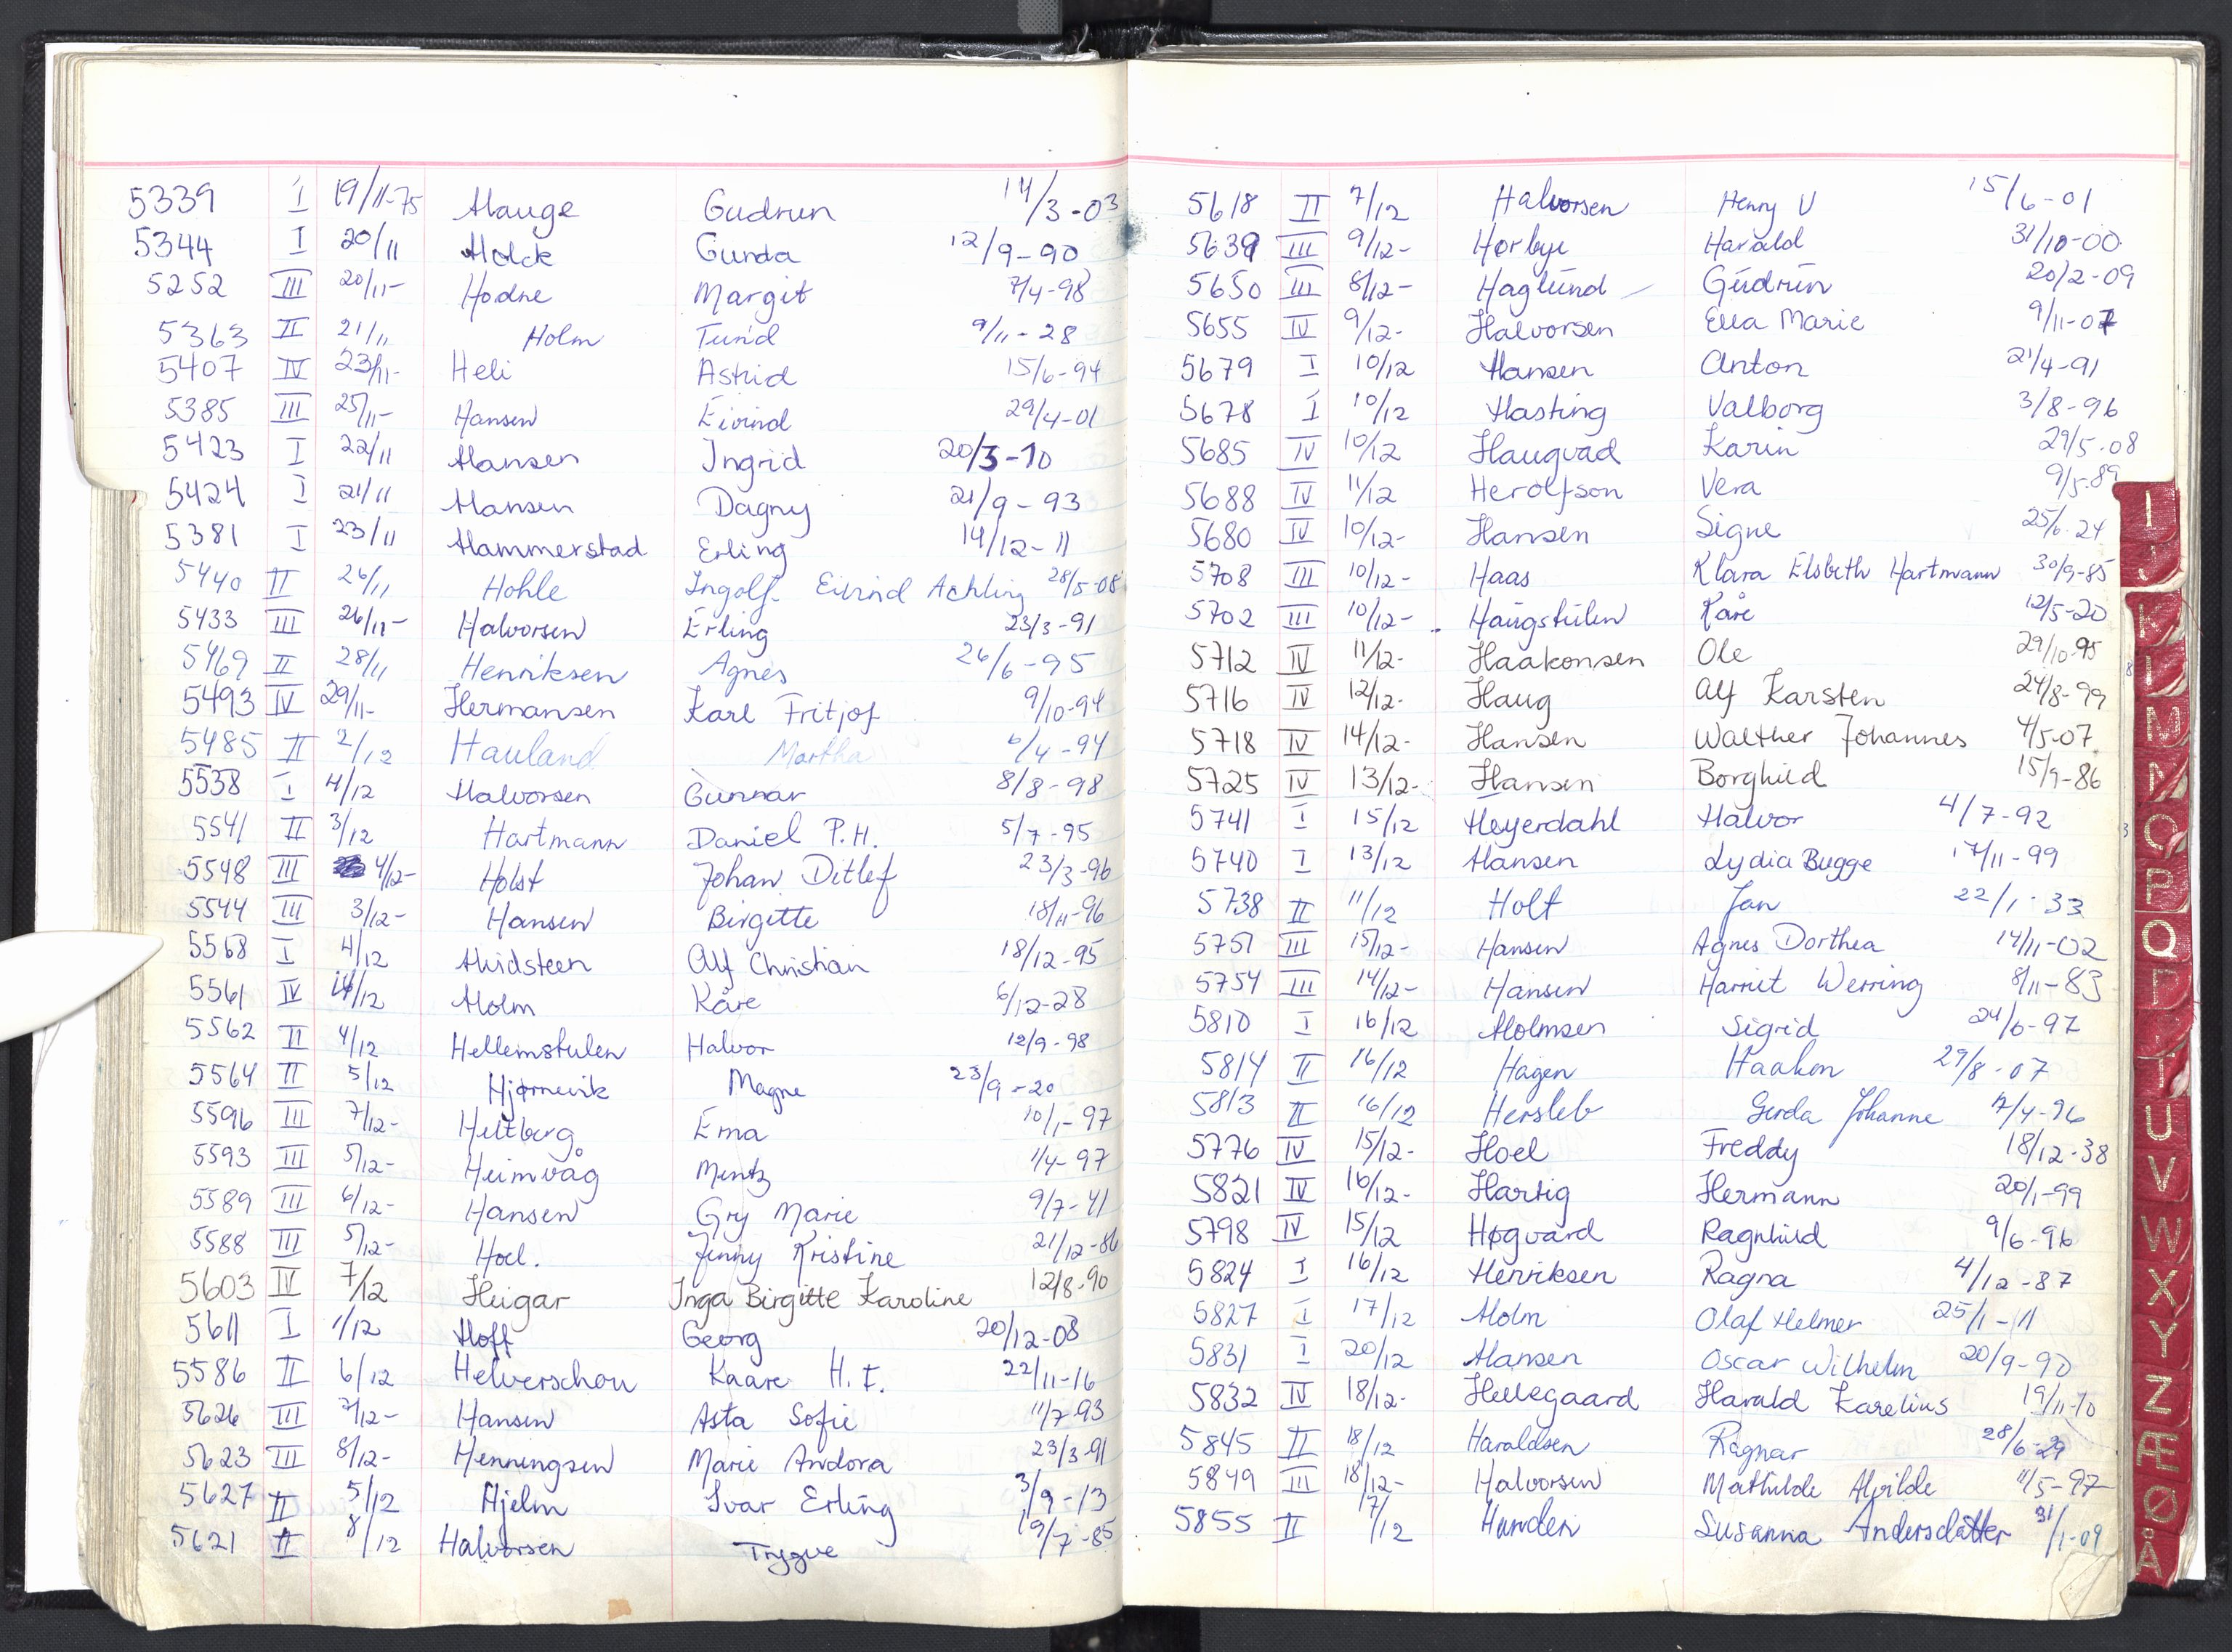 5339 I 19/11-75 Hauge Gudrun 14/3-03
5344 I 20/11 Holck Gunda 12/9-90
5252 III 20/11- Hodne Margit 7/4-98
5363 II 21/11 Holm Turid 9/11-28
5407 IV 23/11- Heli Astrid 15/6-94
5385 III 25/11- Hansen Eivind 29/4-01
5423 I 22/11 Hansen Ingrid 20/3-10
5424 I 21/11 Hansen Dagny 21/9-93
5381 I 23/11 Hammerstad Erling 14/12-11
5440 II 26/11 Hohle Ingolf Eivind Achling 28/5-08
5433 III 26/11- Halvorsen Erling 23/3-91
5469 II 28/11 Henriksen Agnes 26/6-95
5493 IV 29/11- Hermansen Karl Fritjof 9/10-94
5485 II 2/12 Hauland Martha 6/4-94
5538 I 4/12 Halvorsen Gunnar 8/8-98
5541 II 3/12 Hartmann Daniel P.H. 5/7-95
5548 III 4/12- Holst Johan Ditlef 23/3-96
5544 III 3/12- Hansen Birgitte 18/11-96
5568 I 4/12 Hvidsteen Alf Christian 18/12-95
5561 IV 4/12 Holm Kåre 6/12-28
5562 II 4/12 Hellemstulen Halvor 12/9-98
5564 II 5/12 Hjørnevik Magne 23/9-20
5596 III 7/12- Heltberg Erna 10/1-97
5593 III 5/12- Heimvåg Mentz 1/4-97
5589 III 6/12- Hansen Gry Marie 9/7-41
5588 III 5/12- Hoel. Jenny Kristine 21/12-86
5603 IV 7/12 Heigar Inga Birgitte Karoline 12/8-90
5611 I 1/12 Hoff Georg 20/12-08
5586 II 6/12 Helverschou Kaare H.F. 22/11-16
5626 III 7/12- Hansen Asta Sofie 11/7-93
5623 III 8/12- Henningsen Marie Andora 23/3-91
5627 II 5/12 Hjelm Ivar Erling 3/9-13
5621 II 8/12 Halvorsen Trygve 19/7-85
5618 II 7/12 Halvorsen Henry V 15/6-01
5639 III 9/12- Hørbye Harald 31/10-00
5650 III 8/12- Haglund Gudrun 20/2-09
5655 IV 9/12- Halvorsen Ella Marie 9/11-07
5679 I 10/12 Hansen Anton 21/4-91
5678 I 10/12 Hasting Valborg 3/8-96
5685 IV 10/12 Haugvad Karin 29/5-08
5688 IV 11/12 Herolfson Vera 9/5-89
5680 IV 10/12- Hansen Signe 25/6-24
5708 III 10/12- Haas Klara Elsbeth Hartmann 30/9-85
5702 III 10/12- Haugstulen Kåre 12/5-20
5712 IV 11/12- Haakonsen Ole 29/10-95
5716 IV 12/12- Haug Alf Karsten 24/8-99
5718 IV 14/12- Hansen Walther Johannes 4/5-07
5725 IV 13/12- Hansen Borghild 15/9-86
5741 I 15/12 Heyerdahl Halvor 4/7-92
5740 I 13/12 Hansen Lydia Bugge 17/11-99
5738 II 11/12 Holt Jan 22/1-33
5751 III 15/12- Hansen Agnes Dorthea 14/11-02
5754 III 14/12- Hansen Harriet Werring 8/11-83
5810 I 16/12 Holmsen Sigrid 24/6-97
5814 II 16/12 Hagen Haakon 29/8-07
5813 II 16/12 Hersleb Gerda Johanne 7/4-96
5776 IV 15/12- Hoel Freddy 18/12-38
5821 IV 16/12- Hartig Hermann 20/1-99
5798 IV 15/12 Høgvard Ragnhild 9/6-96
5824 I 16/12 Henriksen Ragna 4/12-87
5827 I 17/12 Holm Olaf Helmer 25/1-11
5831 I 20/12 Hansen Oscar Wilhelm 20/9-90
5832 IV 18/12- Hellegaard Harald Karelius 19/11-10
5845 II 18/12 Haraldsen Ragnar 28/6-29
5849 III 18/12- Halvorsen Mathilde Alvilde 11/5-97
5855 II 17/12 Hunderi Susanna Andersdatter 31/1-09
I
J
K
L
M
N
O
P
Q
R
T
U
V
W
X
Y
Z
Æ
Ø
Å